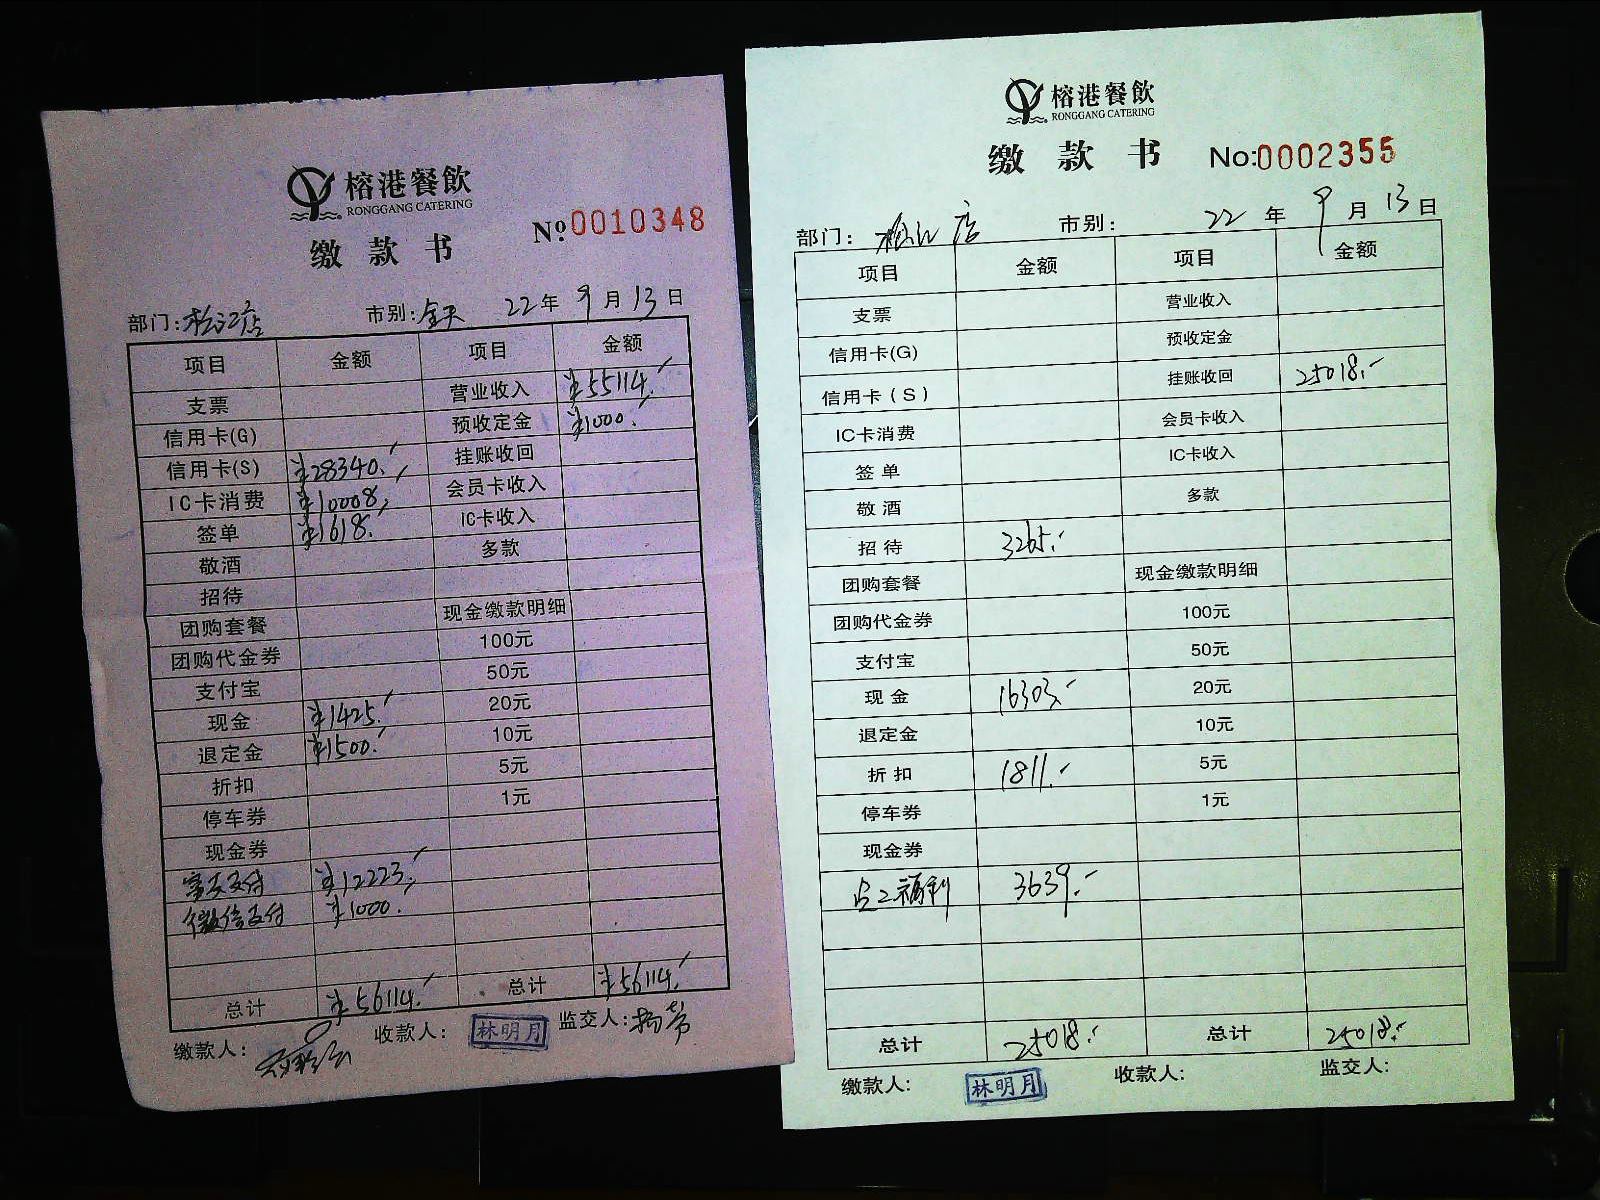 榕港餐飲
RONGGANG CATERING
缴款书
№0010348
部门:松江店 市别:全天 22年9月13日
项目 金额 项目 金额
支票 营业收入 ¥55114.
信用卡(G) 预收定金 ¥1000.
信用卡(S) ¥28340. 挂账收回
IC卡消费 ¥10008. 会员卡收入
签单 ¥1618. IC卡收入
敬酒 多款
招待
团购套餐 现金缴款明细
团购代金券 100元
支付宝 50元
现金 ¥1425. 20元
退定金 ¥1500. 10元
折扣 5元
停车券 1元
现金券
¥12223.
微信支付 ¥1000.
总计 ¥56114. 总计 ¥56114.
缴款人: 收款人: 林明月 监交人:杨芳
榕港餐飲
RONGGANG CATERING
缴款书 No:0002355
部门:松江店 市别: 22年9月13日
项目 金额 项目 金额
支票 营业收入
信用卡(G) 预收定金
信用卡(S) 挂账收回 25018.-
IC卡消费 会员卡收入
签单 IC卡收入
敬酒 多款
招待 3265.-
团购套餐 现金缴款明细
团购代金券 100元
支付宝 50元
现金 16303.- 20元
退定金 10元
折扣 1811.- 5元
停车券 1元
现金券
员工福利 3639.-
总计 25018.- 总计 25018.-
缴款人: 林明月 收款人: 监交人: